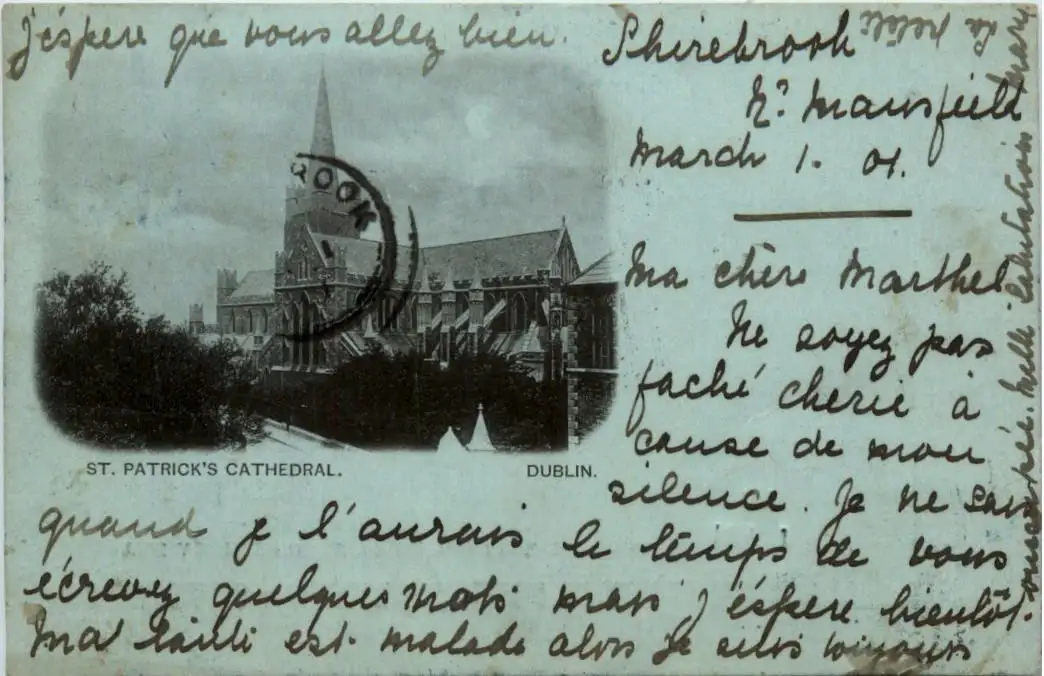 J'éspere que vous allez bien.
Shirebrook
Nr Mansfield
March 1. 01.
Ma chère Marthel
Ne soyez pas
faché cherie à
cause de mon
silence. Je ne sais
quand je l'aurais le temps de vous
écrevez quelques mots mais j'éspere bientôt.
Ma tanti est malade alors je suis toujours
occupée. Mille salutations
de petite
Mary
ROOK
ST. PATRICK'S CATHEDRAL. DUBLIN.